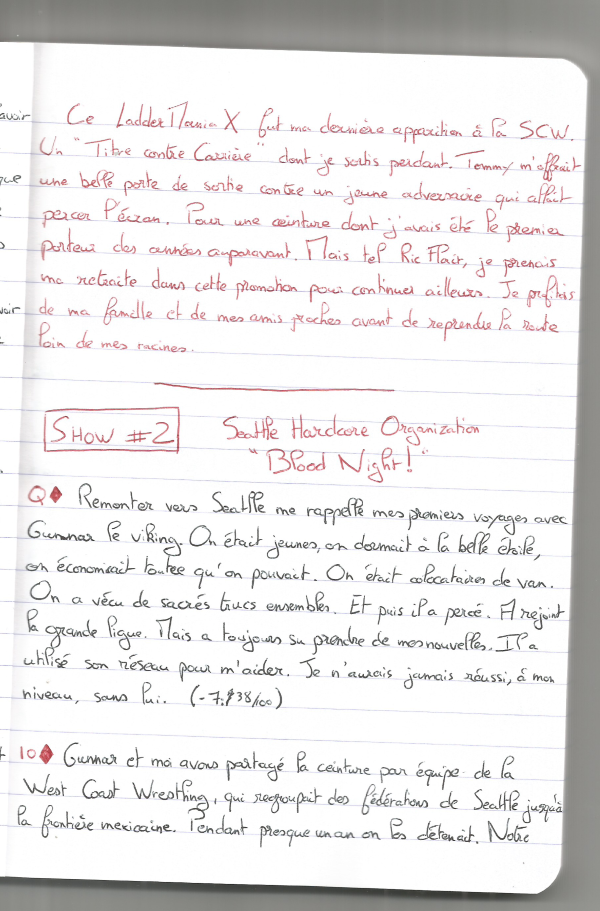 avoir
Ce LadderMania X fut ma dernière apparition à la SCW.
Un "Titre contre Carrière" dont je sortis perdant. Tommy m'offrait
que
une belle porte de sortie contre un jeune adversaire qui allait
percer l'écran. Pour une ceinture dont j'avais été le premier
porteur des années auparavant. Mais tel Ric Flair, je prenais
ma retraite dans cette promotion pour continuer ailleurs. Je profitais
voir
de ma famille et de mes amis proches avant de reprendre la route
loin de mes racines.
SHOW #2
Seattle Hardcore Organization
"Blood Night!"
Q♦ Remonter vers Seattle me rappelle mes premiers voyages avec
Gunnar le viking. On était jeunes, on dormait à la belle étoile,
on économisait toutce qu'on pouvait. On était colocataires de van.
On a vécu de sacrés trucs ensembles. Et puis il a percé. A rejoint
la grande ligue. Mais a toujours su prendre de mes nouvelles. Il a
utilisé son réseau pour m'aider. Je n'aurais jamais réussi, à mon
niveau, sans lui. (-7.$38/100)
10♦ Gunnar et moi avons partagé la ceinture par équipe de la
West Coast Wrestling, qui regroupait des fédérations de Seattle jusqu'à
la frontière mexicaine. Pendant presque un an on les détenait. Notre